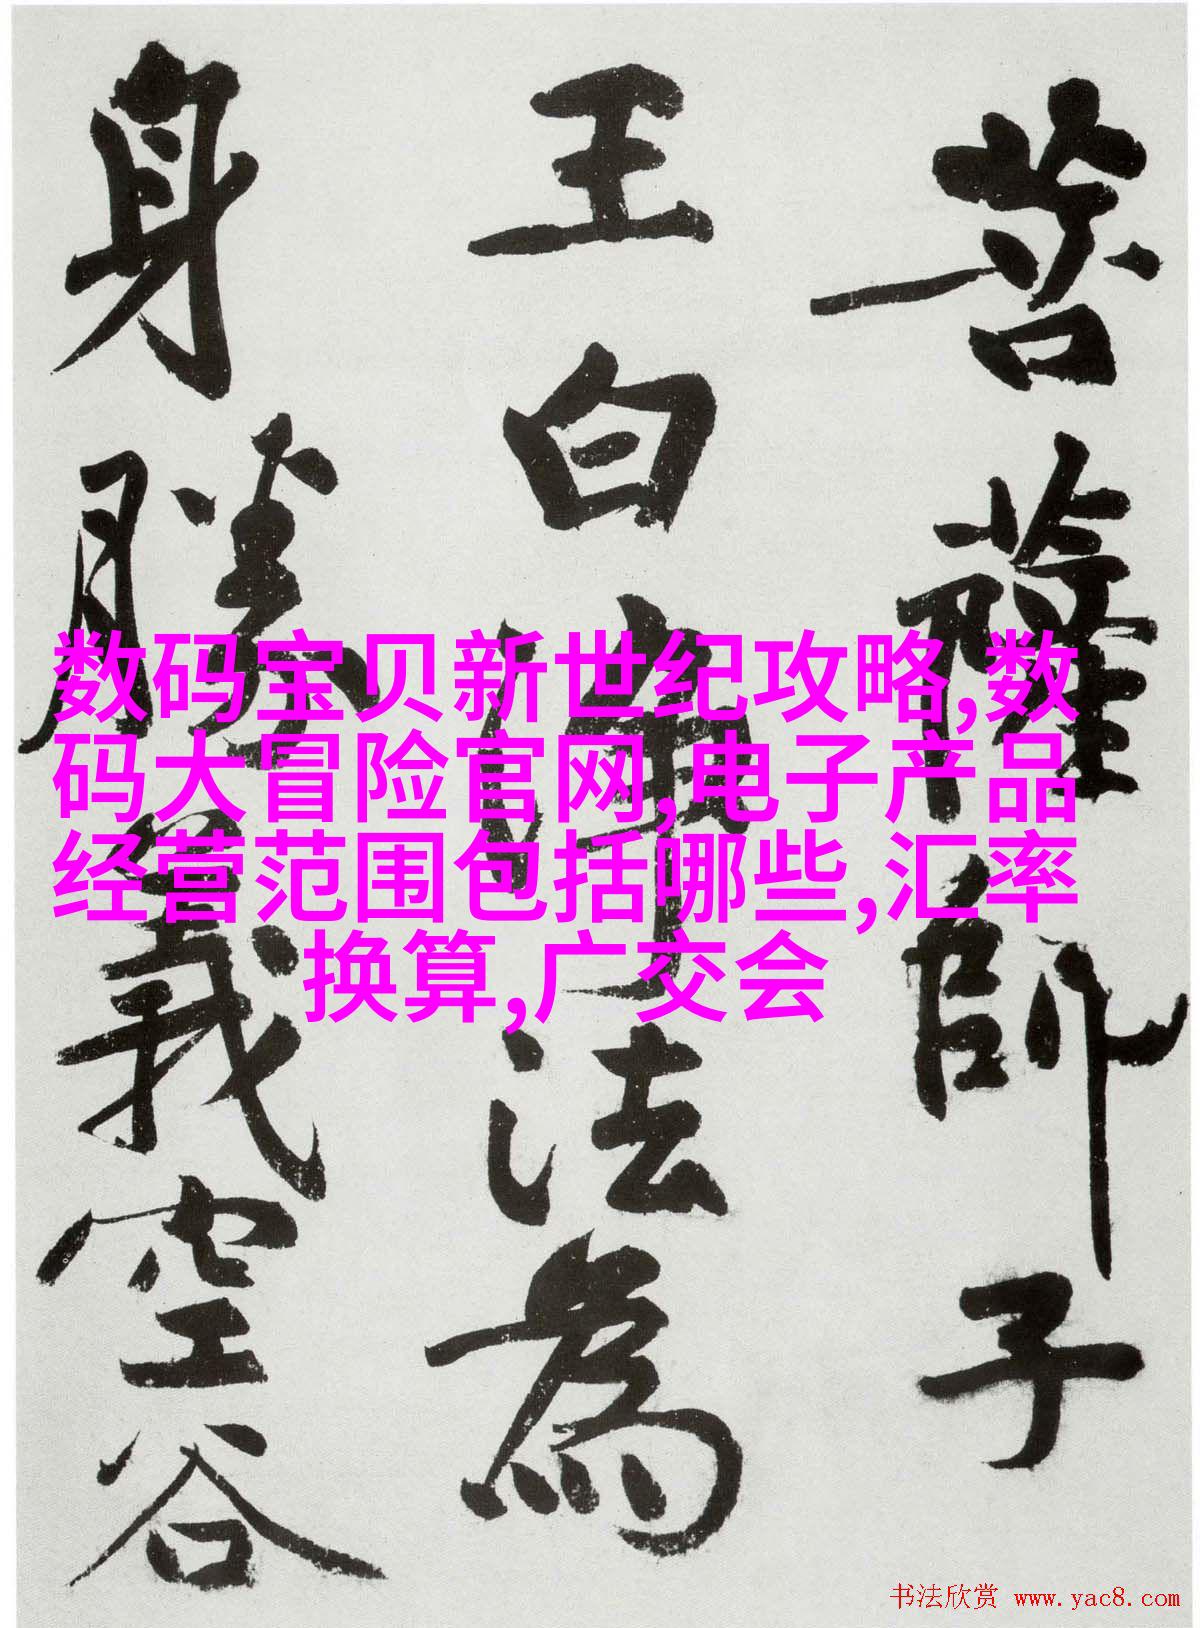 菩萨师子
王白
法為
身勝
義空谷
数码宝贝新世纪攻略,数
码大冒险官网,电子产品
经营范围包括哪些,汇率
换算,广交会
书法欣赏 www.yac8.com